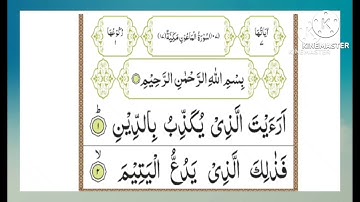 اٰيَاتُهَا ٧
(١٠٧) سُوْرَةُ الْمَاعُوْنِ مَكِّيَّةٌ (١٧)
رُكُوْعُهَا ١
KINEMASTER
KINEMASTER
بِسْمِ اللّٰهِ الرَّحْمٰنِ الرَّحِيْمِ
اَرَءَيْتَ الَّذِىْ يُكَذِّبُ بِالدِّيْنِ ؕ ١
فَذٰلِكَ الَّذِىْ يَدُعُّ الْيَتِيْمَ ۙ ٢